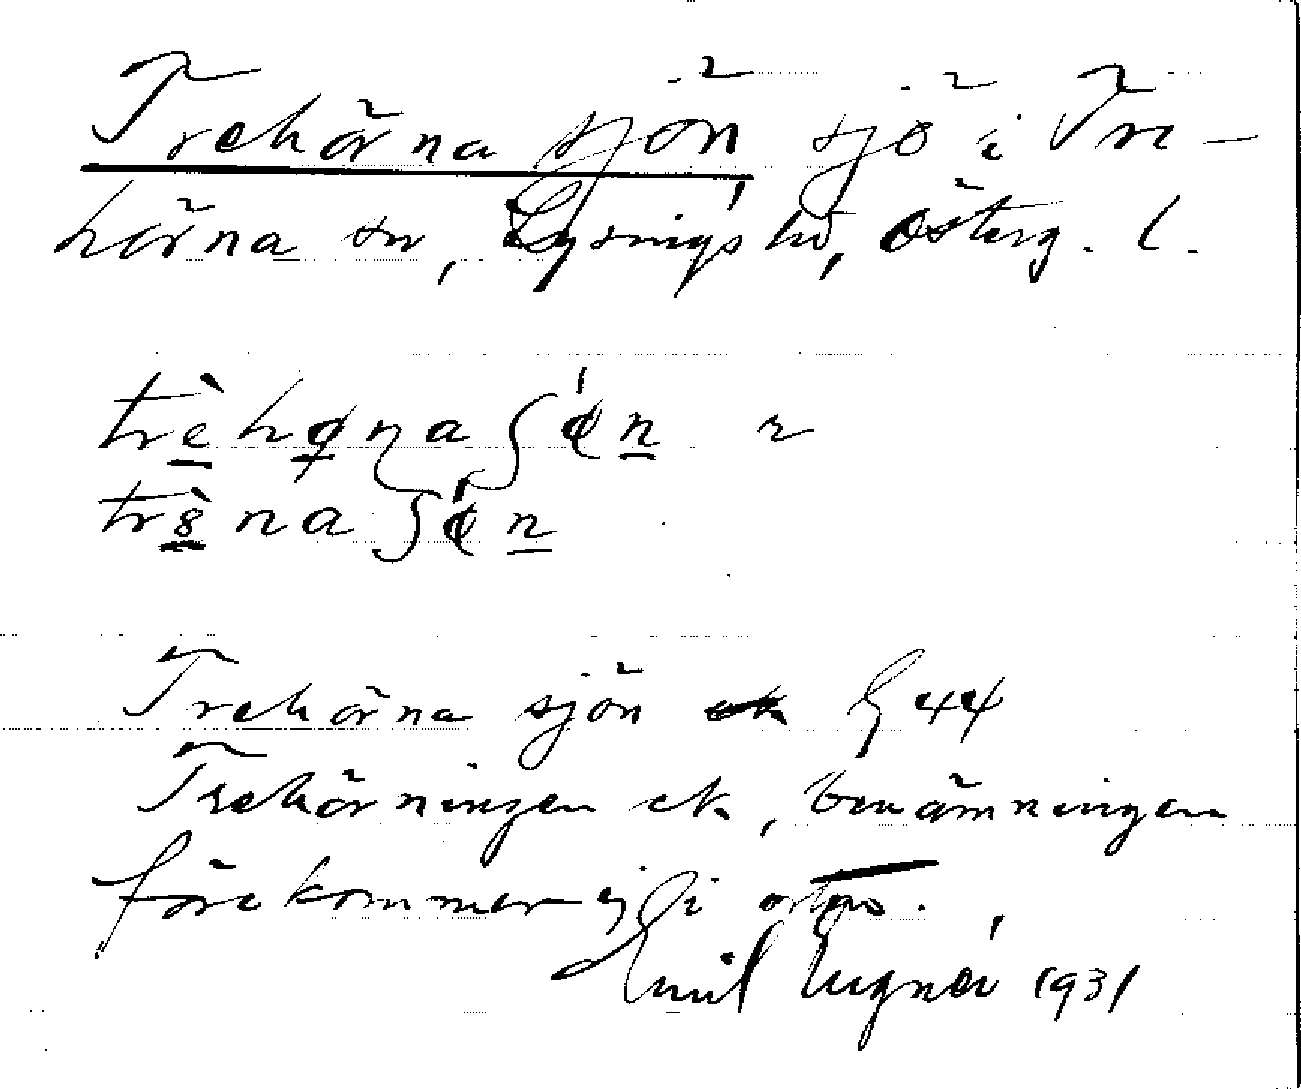 Trehörna sjön sjö i Tre-
hörna sn, Lysings hd, Österg. l.
trèhǫna ʃǿn
trènaʃǿn
Trehörna sjön G 44
Trehörningen ek, benämningen
förekommer ej i orten.
Emil Lignér 1931